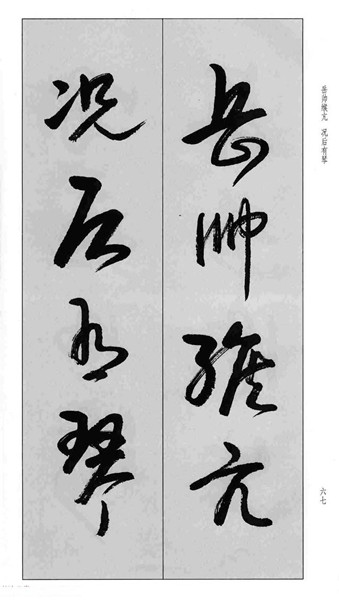 岳帅缑亢 况后有琴
岳帅缑亢
况后有琴
六七